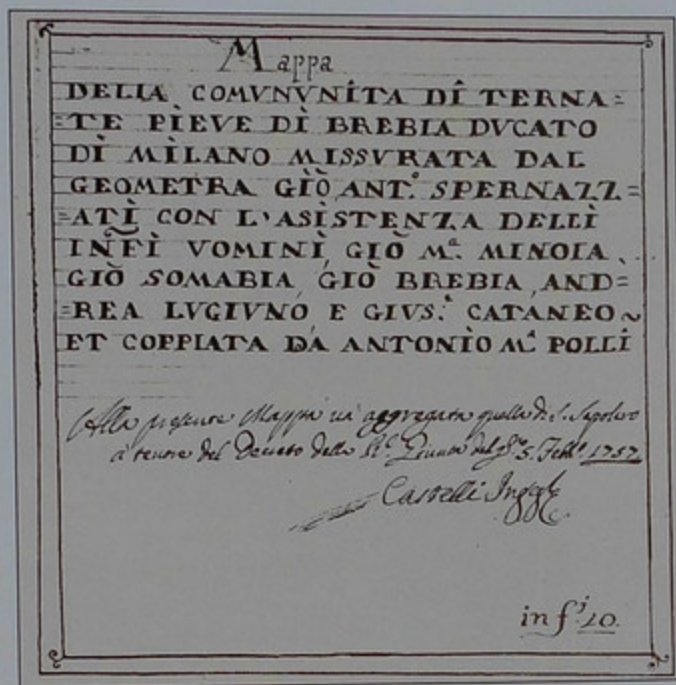 Mappa
DELLA COMVNVNITA DÌ TERNA=
=TE PÌEVE DÌ BREBIA DVCATO
DÌ MÌLANO MISSVRATA DAL
GEOMETRA GIÒ ANT.º SPERNAZZ=
=ATÌ CON L'ASÌSTENZA DELLÌ
INF̃Ì VOMINÌ, GIÕ M.ª MINOIA,
GIÕ SOMABIA, GIÒ BREBIA, AND=
=REA LVGIVNO, E GIVS.ᵉ CATANEO~
ET COPPIATA DA ANTONÌO M.ª POLLI
Alla presente Mappa và aggregata quella di S. Sapolcro
a tenore del Decreto della R.ᶜ Giunta del 5. Febb.º 1757
Castelli
in f.ˡ 10.